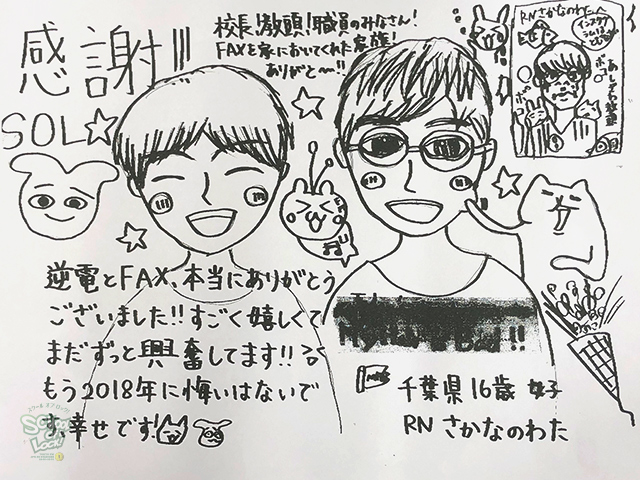 感謝!!
校長!教頭!職員のみなさん!
FAXを家においてくれた家族!
ありがと〜!!
RNさかなのわたへ
SOL☆
逆電とFAX、本当にありがとう
ございました!!すごく嬉しくて
まだずっと興奮してます!!
もう2018年に悔いはないで
す、幸せです!
千葉県 16歳 女子
RN さかなのわた
SCHOOL OF LOCK!